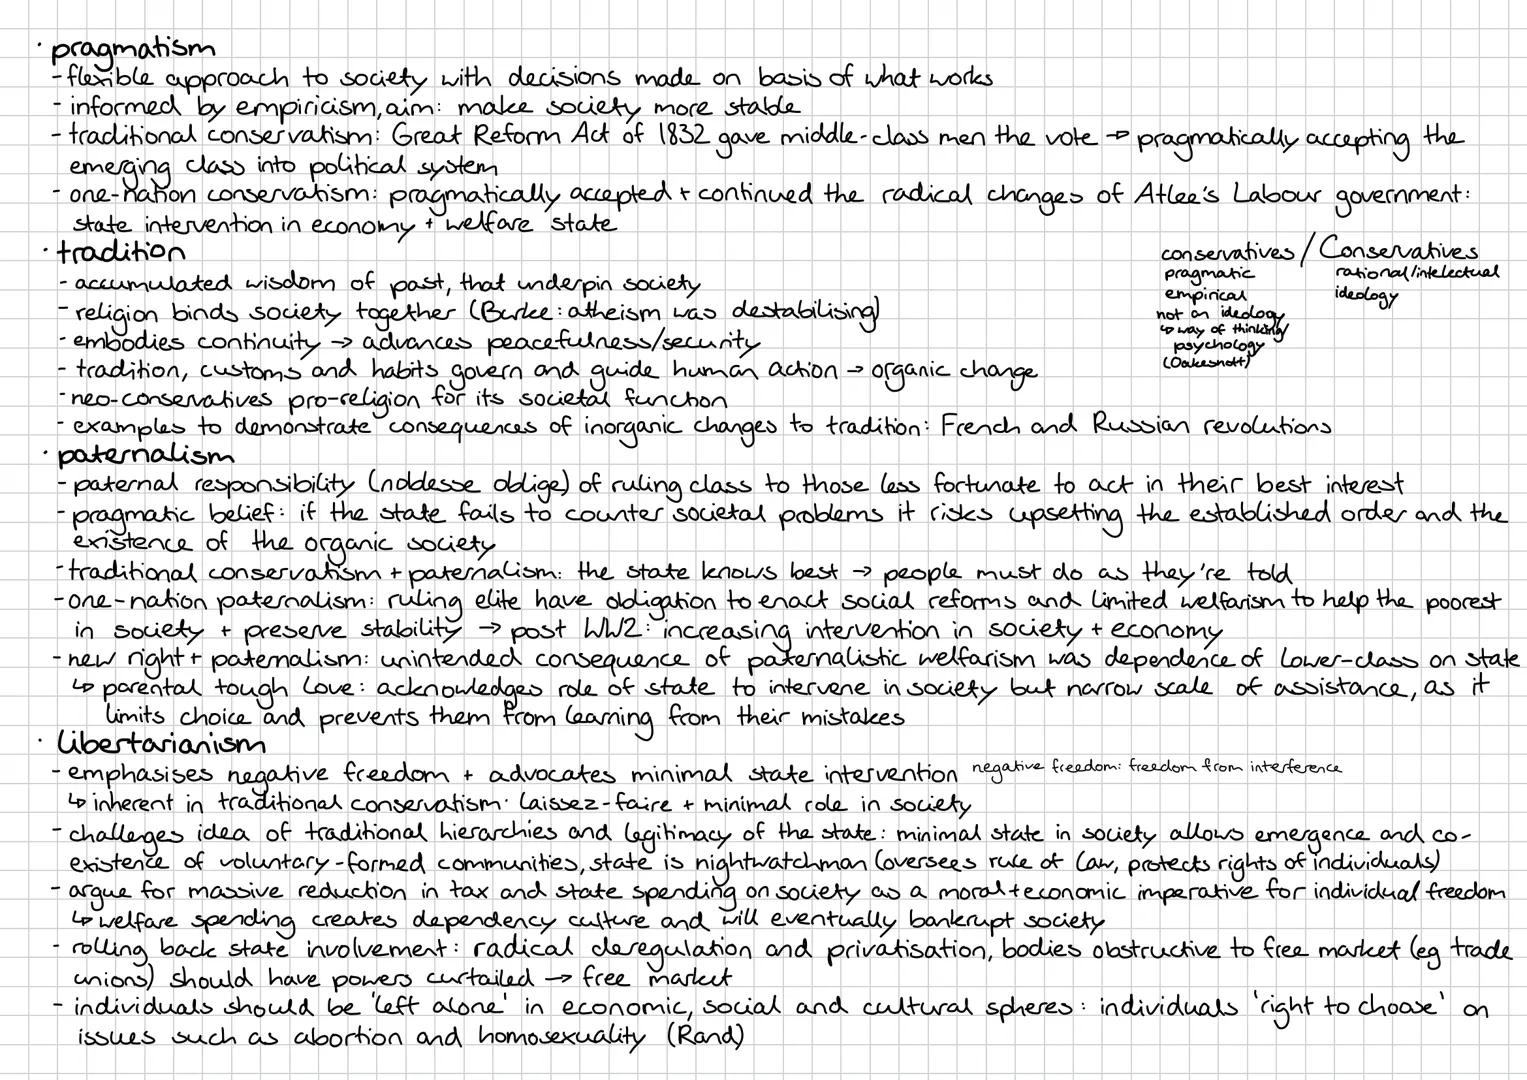 · pragmatism
- flexible approach to society with decisions made on basis of what works
- informed by empiricism, aim: make society more stable
- traditional conservatism: Great Reform Act of 1832 gave middle-class men the vote → pragmatically accepting the
emerging class into political system
- one-nation conservatism: pragmatically accepted + continued the radical changes of Atlee's Labour government:
state intervention in economy + welfare state
· tradition
- accumulated wisdom of past, that underpin society
- religion binds society together (Burke: atheism was destabilising)
- embodies continuity → advances peacefulness/security
- tradition, customs and habits govern and guide human action → organic change
- neo-conservatives pro-religion for its societal function
- examples to demonstrate consequences of inorganic changes to tradition: French and Russian revolutions
conservatives / Conservatives
pragmatic rational/intelectual
empirical ideology
not an ideology
↳ way of thinking/
psychology
(Oakeshott)
· paternalism
- paternal responsibility (noblesse oblige) of ruling class to those less fortunate to act in their best interest
- pragmatic belief: if the state fails to counter societal problems it risks upsetting the established order and the
existence of the organic society
- traditional conservatism + paternalism: the state knows best → people must do as they're told
- one-nation paternalism: ruling elite have obligation to enact social reforms and limited welfarism to help the poorest
in society + preserve stability → post WW2: increasing intervention in society + economy
- new right + paternalism: unintended consequence of paternalistic welfarism was dependence of lower-class on state
↳ parental tough love: acknowledges role of state to intervene in society but narrow scale of assistance, as it
limits choice and prevents them from learning from their mistakes
· libertarianism
- emphasises negative freedom + advocates minimal state intervention negative freedom: freedom from interference
↳ inherent in traditional conservatism: laissez-faire + minimal role in society
- challenges idea of traditional hierarchies and legitimacy of the state: minimal state in society allows emergence and co-
existence of voluntary-formed communities, state is nightwatchman (oversees rule of law, protects rights of individuals)
- argue for massive reduction in tax and state spending on society as a moral + economic imperative for individual freedom
↳ welfare spending creates dependency culture and will eventually bankrupt society
- rolling back state involvement: radical deregulation and privatisation, bodies obstructive to free market (eg trade
unions) should have powers curtailed → free market
- individuals should be 'left alone' in economic, social and cultural spheres: individuals 'right to choose' on
issues such as abortion and homosexuality (Rand)